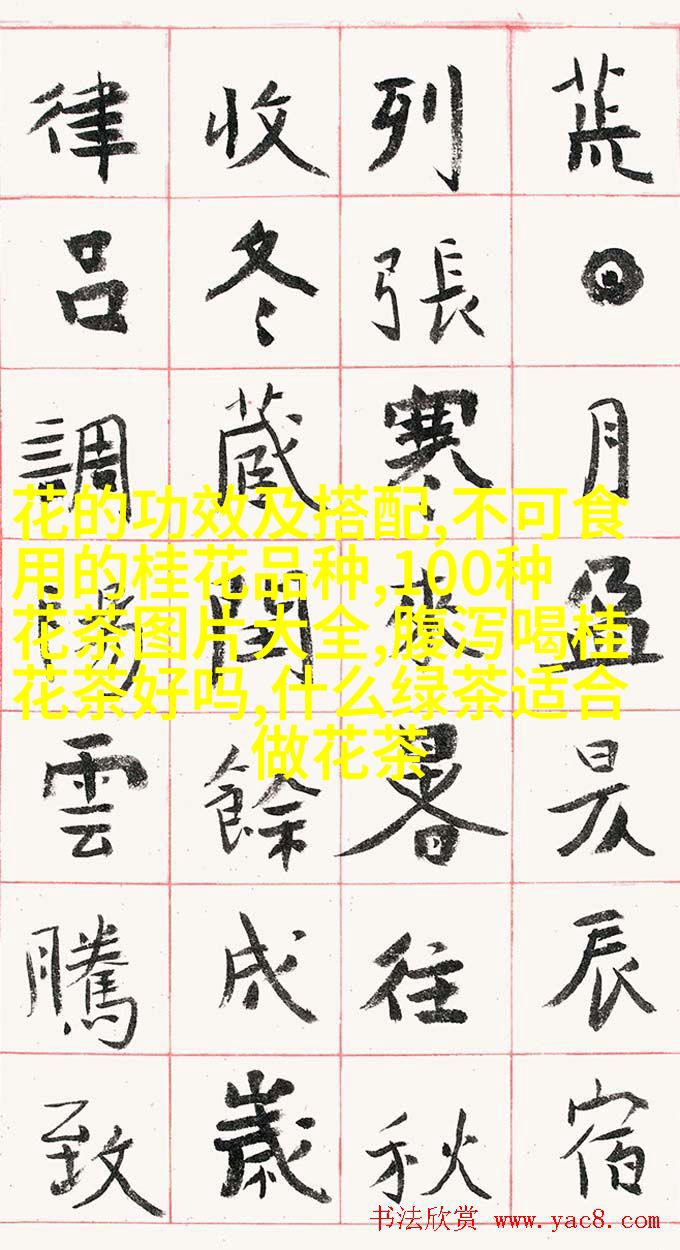 荒日月盈昃辰宿
列張寒來暑往秋
收冬藏閏餘成歲
律呂調陽雲騰致
花的功效及搭配,不可食
用的桂花品种,100种
花茶图片大全,腹泻喝桂
花茶好吗,什么绿茶适合
做花茶
书法欣赏 www.yac8.com